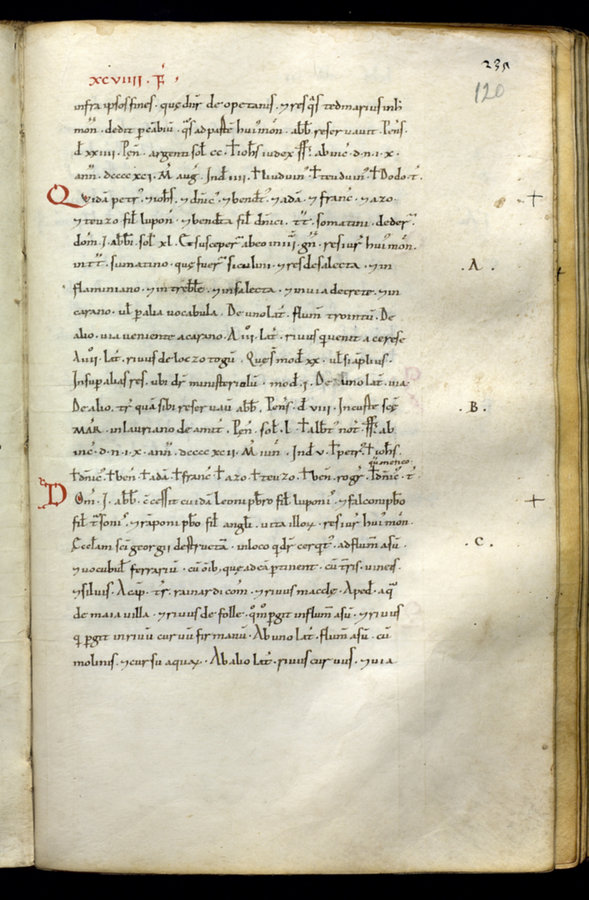 235
120
xcviiii . F .
infra ipsos fines . quę dnr de opetanis . ⁊ res qs tedmarius inh
mon . dedit
abb reservavit . Pens .
đ xxiiii . Pen . argenti sol cc . † iohs iudex ss . ab inc . d . n . i . x .
ann . dcccc xci . M aug . Ind iiii . † liuduin . † teuduin . † Dodo . t .
Quidā petr . ⁊ iohs . ⁊ dnic . ⁊ bendt . ⁊ adā . ⁊ franc . ⁊ azo .
⁊ teuzo fil lupon . ⁊ bendta fil dnici . tt . somatini . deder .
dom . I . abbi . sol xl . Et susceper ab eo in iii . gn . res iur hui mon .
in tt . sumatino . que fuer siculini . ⁊ res de salecta . ⁊ in
flaminiano . ⁊ in treble . ⁊ insalecta . ⁊ in via decrete . ⁊ in
carano . ul p alia vocabula . De uno lat . flum trointu . De
alio . via veniente a carano . A iii . lat . rivus q venit a cerese
A iiii . lat . rivus de loczo togu . Quęs mod xx . ul si aplius .
Insup alias res . ubi dr ministeriolu . mod . i . De uno lat . via
De alio . tr quā sibi reservavit abb . Pens . đ viii . In custe sce
MAR . in lauriano de amit . Pen . sol . l . † albt not . ss . ab
inc . d . n . i . x . ann . dcccc xcii . M iun . Ind . v . † petr . † iohs .
† dnic . † ben . † adā . † franc . † azo . † teuzo . † ben . rogr . † dnic . t .
Dom . I . abb . ccessit cuidā leoni pbro fil luponi . ⁊ falconi pbo
fil
⁊ raponi pbo fil angli . vita illoꝝ . res iur hui mon .
Ecclam sci georgii destructā . in loco q dr cerqto . ad flum asu .
⁊ vocubul ferrariu . cu oib, que ad eā ptinent . cu tris . vineis .
⁊ silvis . A cap . tr . rainardi com . ⁊ rivus maccle . A ped . aq
de maia villa . ⁊ rivus de folle . qm pgit in flum asu . ⁊ rivus
q pgit in rivu curvu firmanu . Ab uno lat . flum asu . cu
molinis . ⁊ cursu aquaꝝ . Ab alio lat . rivus curvus . ⁊ via
+
. A .
. B .
+
. C .